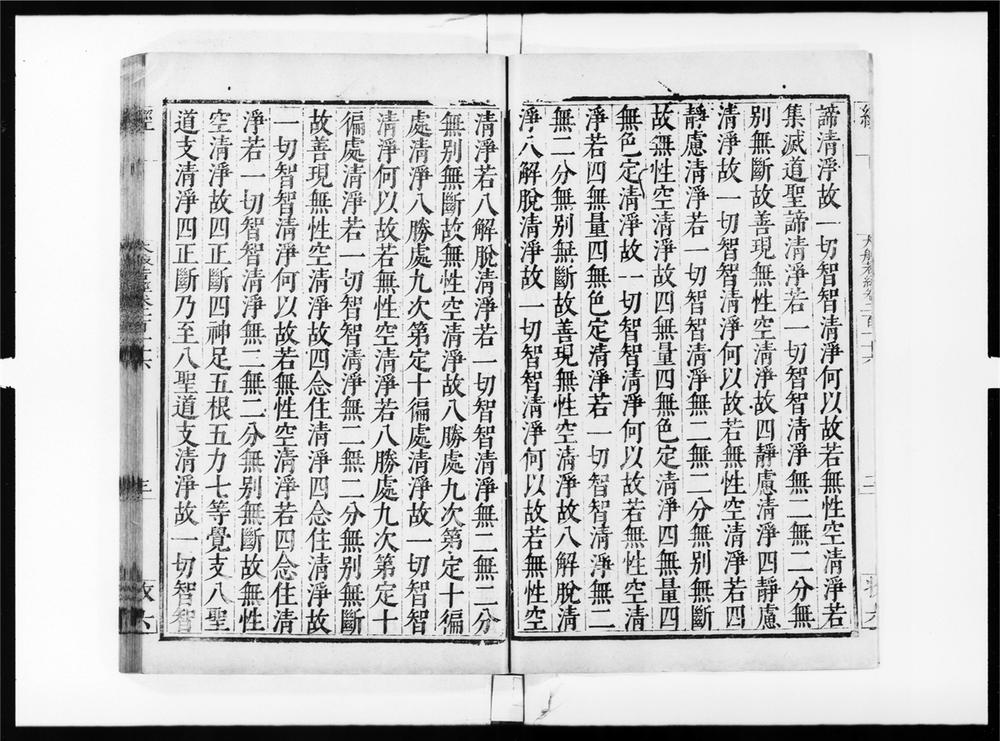 諦清淨故一切智智清淨何以故若無性空清淨若
集滅道聖諦清淨若一切智智清淨無二無二分無
別無斷故善現無性空清淨故四靜慮清淨四靜慮
清淨故一切智智清淨何以故若無性空清淨若四
靜慮清淨若一切智智清淨無二無二分無別無斷
故無性空清淨故四無量四無色定清淨四無量四
無色定清淨故一切智智清淨何以故若無性空清
淨若四無量四無色定清淨若一切智智清淨無二
無二分無別無斷故善現無性空清淨故八解脫清
淨八解脫清淨故一切智智清淨何以故若無性空
清淨若八解脫清淨若一切智智清淨無二無二分
無別無斷故無性空清淨故八勝處九次第定十徧
處清淨八勝處九次第定十徧處清淨故一切智智
清淨何以故若無性空清淨若八勝處九次第定十
徧處清淨若一切智智清淨無二無二分無別無斷
故善現無性空清淨故四念住清淨四念住清淨故
一切智智清淨何以故若無性空清淨若四念住清
淨若一切智智清淨無二無二分無別無斷故無性
空清淨故四正斷四神足五根五力七等覺支八聖
道支清淨四正斷乃至八聖道支清淨故一切智智
經
三